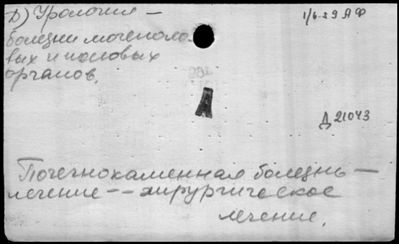 Д) Урология —
болезни мочеполо
вых и половых
органов.
1/6-29 АФ
Д 21043
Почечнокаменная болезнь —
лечение -- хирургическое
лечение.